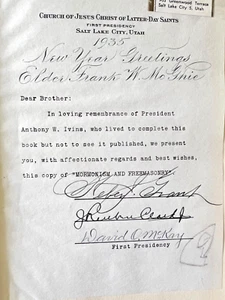 Greenwood Terrace
Salt Lake City 5, Utah
CHURCH OF JESUS CHRIST OF LATTER-DAY SAINTS
FIRST PRESIDENCY
SALT LAKE CITY, UTAH
1935
New Year Greetings
Elder Frank W. McGhie
Dear Brother:
In loving remembrance of President
Anthony W. Ivins, who lived to complete this
book but not to see it published, we present
you, with affectionate regards and best wishes,
this copy of "MORMONISM AND FREEMASONRY"
Heber J. Grant
J. Reuben Clark, Jr.
David O. McKay
First Presidency